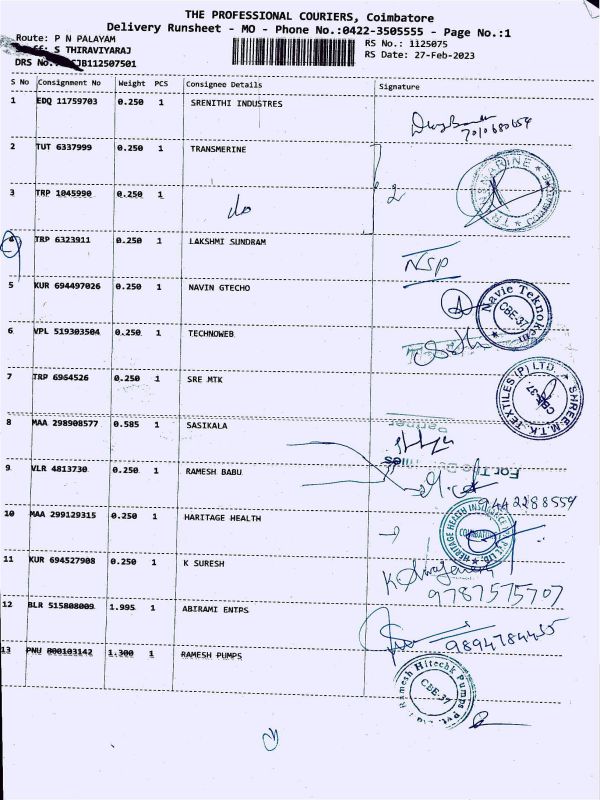 THE PROFESSIONAL COURIERS, Coimbatore
Delivery Runsheet - MO - Phone No.:0422-3505555 - Page No.:1
Route: P N PALAYAM
RS No.: 1125075
S THIRAVIYARAJ
RS Date: 27-Feb-2023
DRS No. CJB112507501
S No Consignment No Weight PCS Consignee Details Signature
1 EDQ 11759703 0.250 1 SRENITHI INDUSTRES
7010680654
2 TUT 6337999 0.250 1 TRANSMERINE
3 TRP 1045990 0.250 1 do 2
4 TRP 6323911 0.250 1 LAKSHMI SUNDRAM
NSP
5 KUR 694497026 0.250 1 NAVIN GTECHO
Navic Teknokem
CBE-37
6 VPL 519303504 0.250 1 TECHNOWEB
7 TRP 6964526 0.250 1 SRE MTK
SHREE M.T.K. TEXTILES (P) LTD.
CBE-37.
8 MAA 298908577 0.585 1 SASIKALA
Partner
For The
9 VLR 4813730 0.250 1 RAMESH BABU
9442288559
10 MAA 299129315 0.250 1 HARITAGE HEALTH
HERITAGE HEALTH INSURANCE
COIMBATORE
11 KUR 694527908 0.250 1 K SURESH
9787575707
12 BLR 515808009 1.995 1 ABIRAMI ENTPS
9894784455
13 PNU 800103142 1.300 1 RAMESH PUMPS
Ramesh Hitechk Pumps Pvt. Ltd
CBE-37